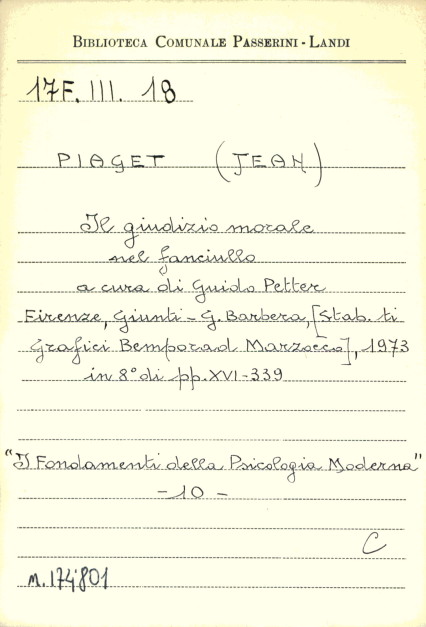 BIBLIOTECA COMUNALE PASSERINI - LANDI
17F. III. 18
PIAGET (JEAN)
Il giudizio morale
nel fanciullo
a cura di Guido Petter
Firenze, Giunti - G. Barbera, [Stab. ti
Grafici Bemporad Marzocco], 1973
in 8° di pp. XVI-339
"I Fondamenti della Psicologia Moderna"
- 10 -
C
n. 174801